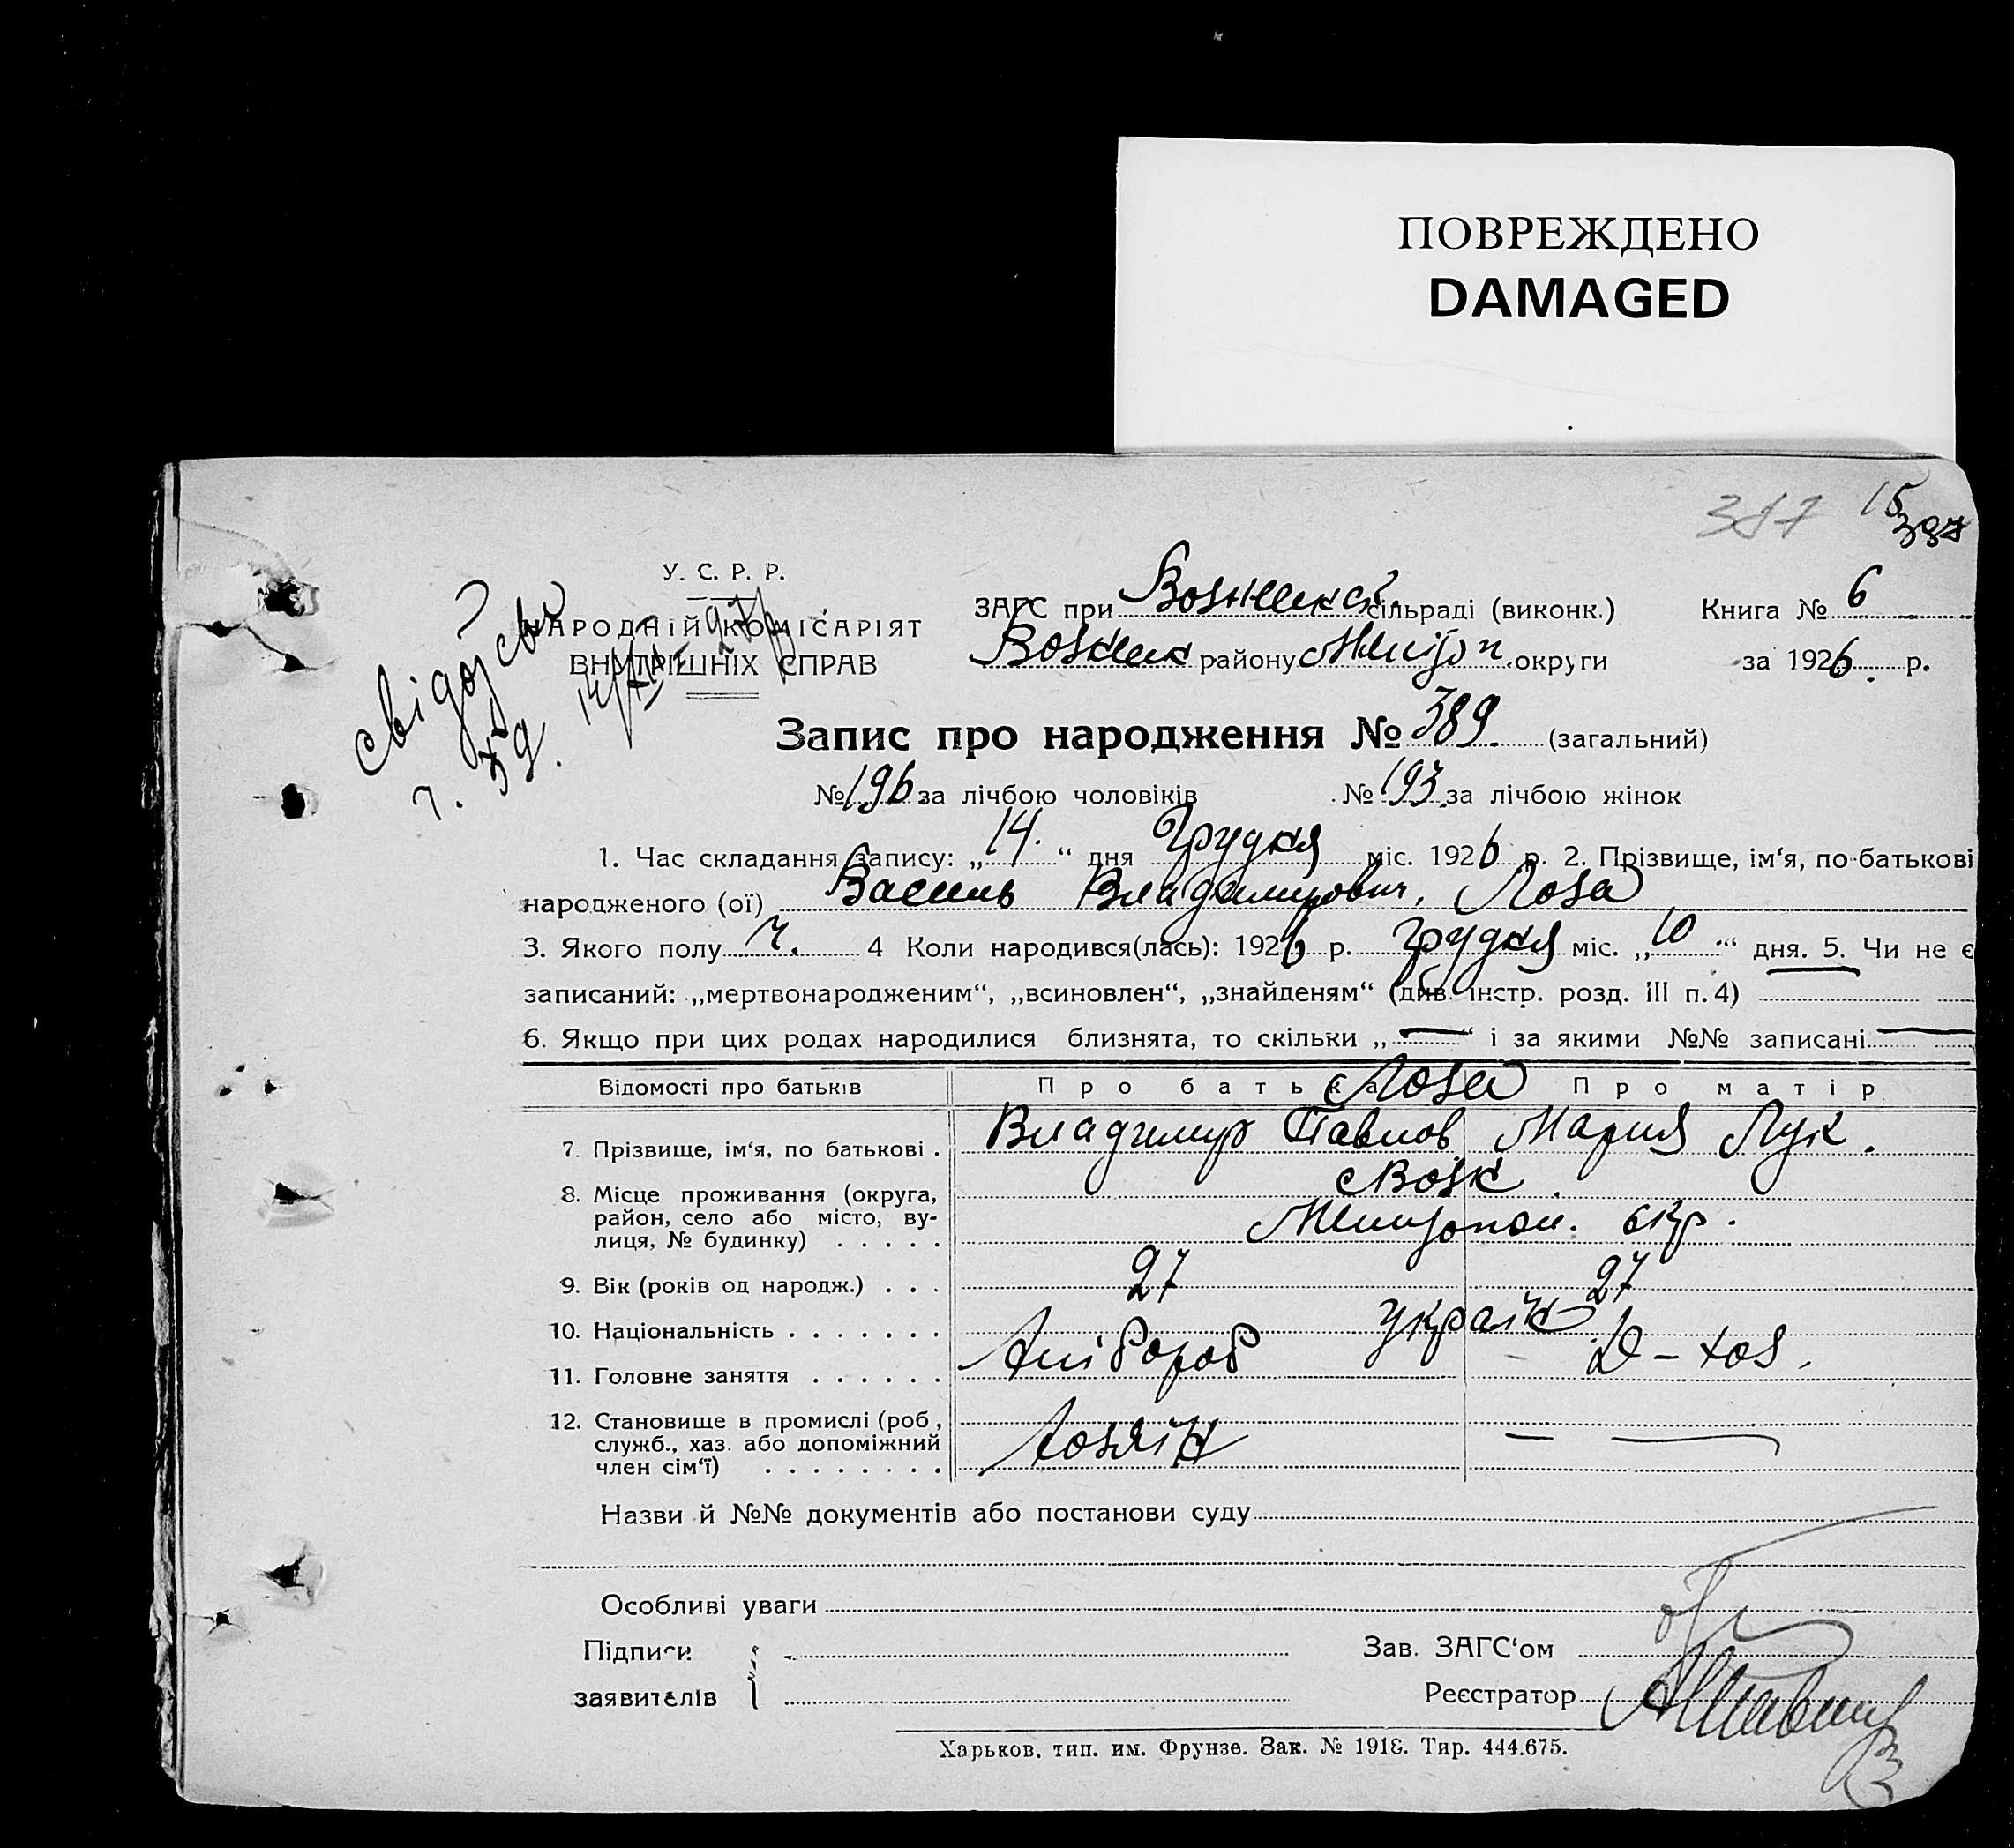 ПОВРЕЖДЕНО
DAMAGED
317 15
387
У. С. Р. Р.
НАРОДНІЙ КОМІСАРІЯТ
ВНУТРІШНІХ СПРАВ
ЗАГС при Вознесенск. сільраді (виконк.) Книга № 6
Вознесен району Мелітоп. округи за 1926 р.
Запис про народження № 389. (загальний)
№ 196 за лічбою чоловіків № 193 за лічбою жінок
1. Час складання запису: „14.“ дня Грудня міс. 1926 р. 2. Прізвище, ім‘я, по-батькові
народженого (ої) Василь Владимирович. Лоза
3. Якого полу ч. 4 Коли народився(лась): 1926 р. Грудня міс. „10“ дня. 5. Чи не є
записаний: „мертвонародженим“, „всиновлен“, „знайденям“ (див. інстр. розд. III п. 4)
6. Якщо при цих родах народилися близнята, то скільки „—“ і за якими №№ записані —
Відомості про батьків Про батька Про матір
Лоза
7. Прізвище, ім‘я, по батькові . Владимир Павлов Мария Лук.
8. Місце проживання (округа, Возн.
район, село або місто, ву-
лиця, № будинку) . . . . . Мелитопол. окр.
9. Вік (років од народж.) . . . 27 27
10. Національність . . . . . . . україн
11. Головне заняття . . . . . . Хлібороб Д-хоз.
12. Становище в промислі (роб.,
служб., хаз. або допоміжний Хозяїн — —
член сім‘ї) . . . . . . . .
Назви й №№ документів або постанови суду
Особливі уваги
Підписи Зав. ЗАГС‘ом
заявителів Реєстратор
Харьков, тип. им. Фрунзе. Зак. № 1918. Тир. 444.675.